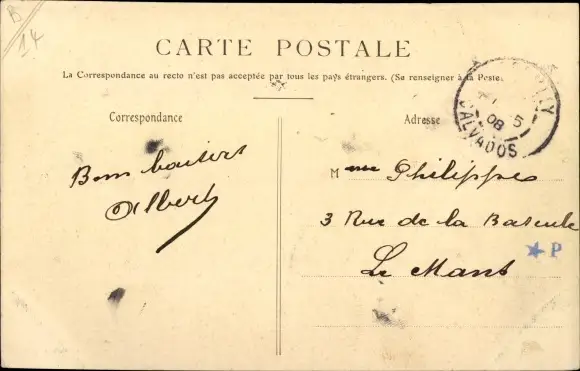 B
14
CARTE POSTALE
La Correspondance au recto n'est pas acceptée par tous les pays étrangers. (Se renseigner à la Poste.
Correspondance
Adresse
5
08
CALVADOS
Bons baisers
Albert
Mme Philippes
3 Rue de la Bascule
Le Mans
P